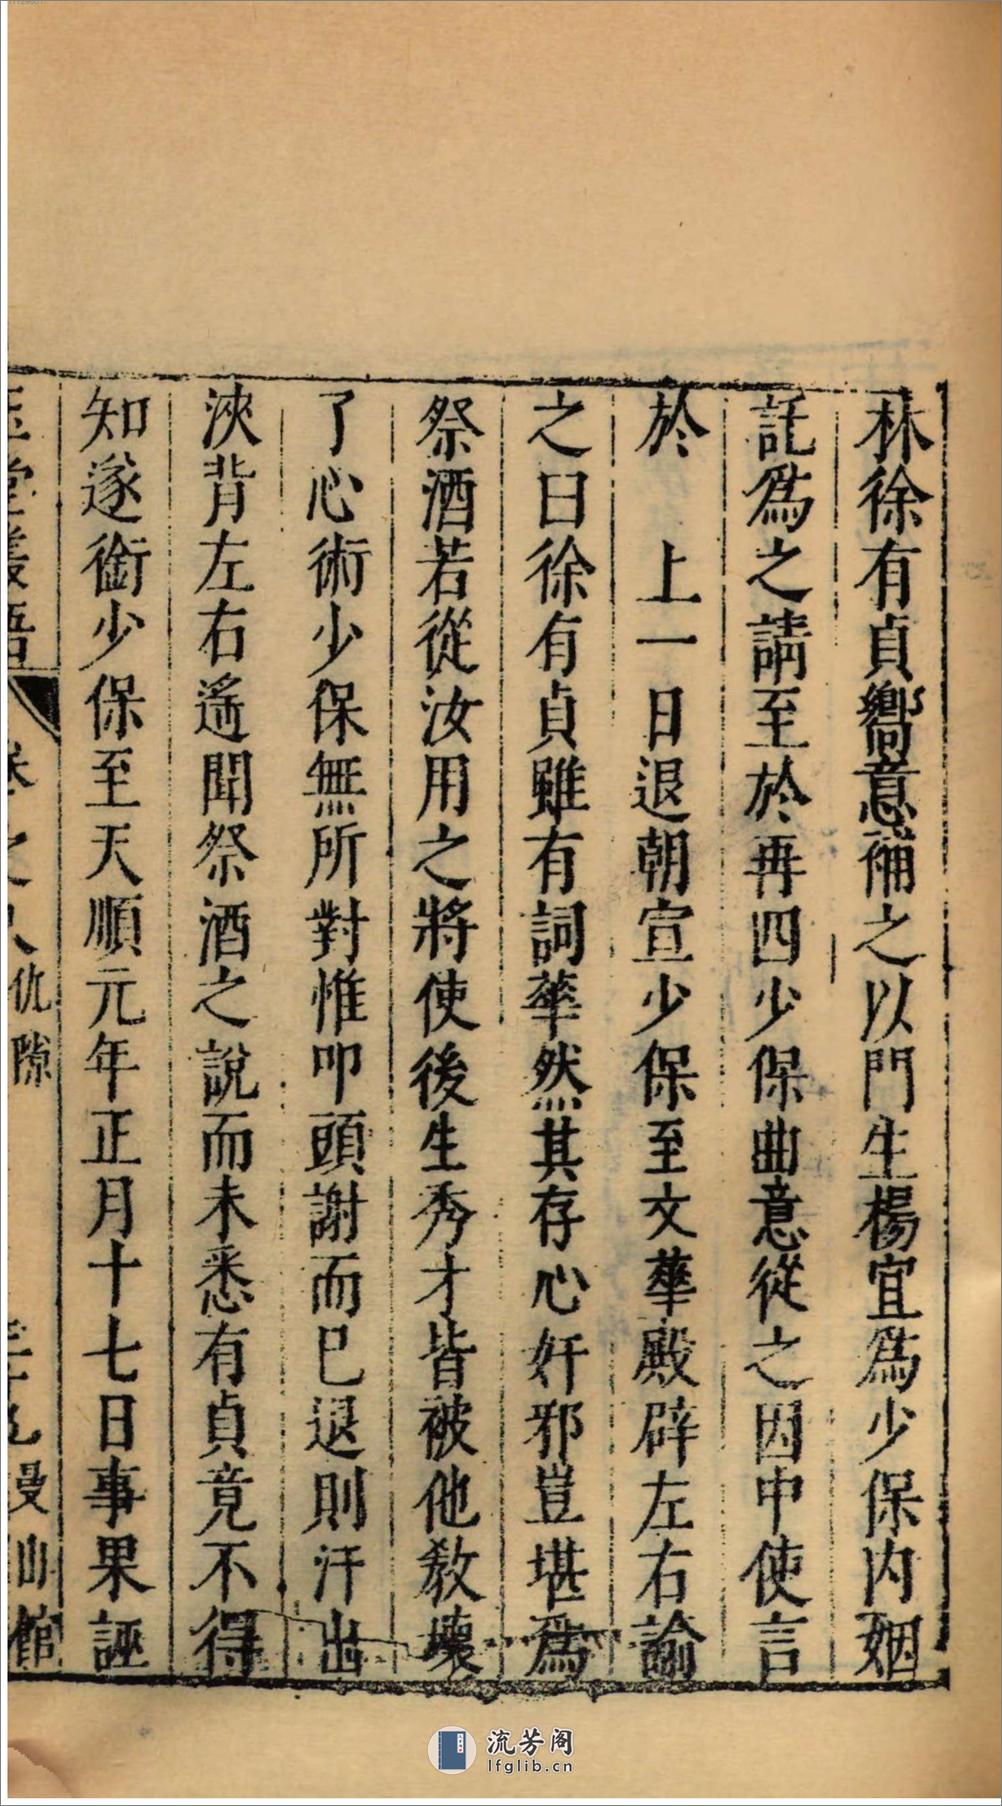 林徐有貞嚮意補之以門生楊宜爲少保内姻
託爲之請至於再四少保曲意從之因中使言
於　上一日退朝宣少保至文華殿辟左右諭
之曰徐有貞雖有詞華然其存心奸邪豈堪爲
祭酒若從汝用之將使後生秀才皆被他敎壞
了心術少保無所對惟叩頭謝而已退則汗出
浹背左右遙聞祭酒之說而未悉有貞竟不得
知遂銜少保至天順元年正月十七日事果誣
玉堂叢語 卷之八 仇隙 曼山館
流芳阁
lfglib.cn